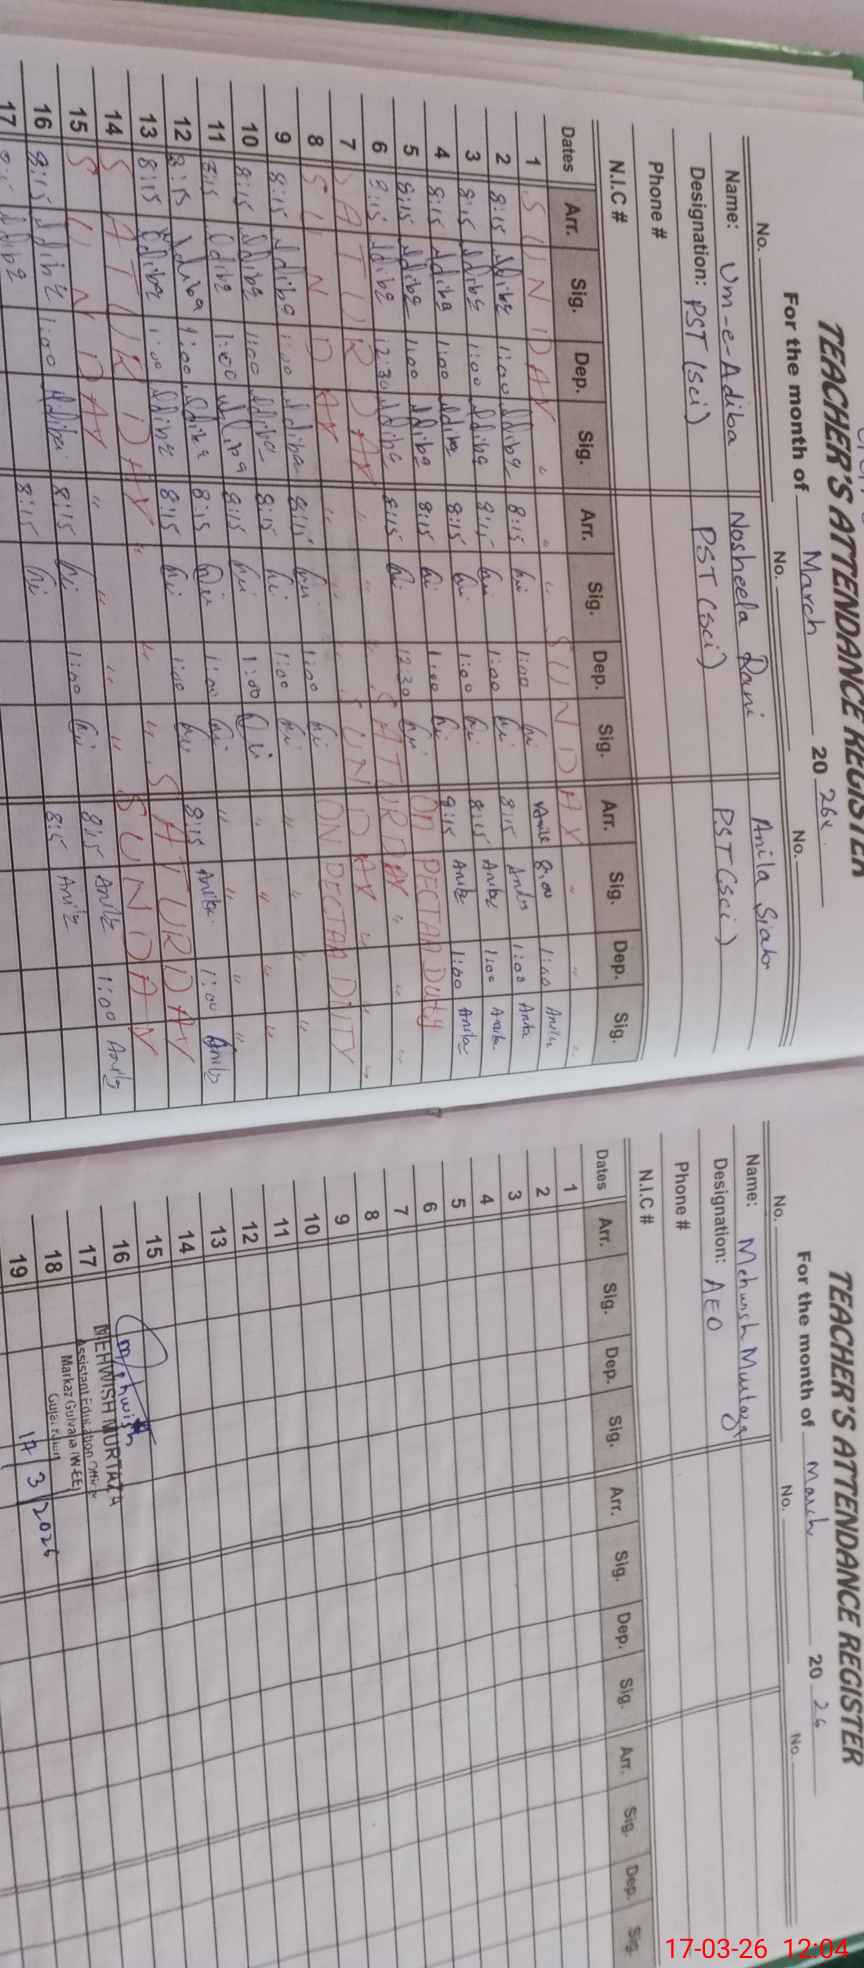 TEACHER'S ATTENDANCE REGISTER
For the month of March 2026
No. No. No.
Name: Um-e-Adiba Nosheela Rani Anila
Designation: PST (Sci) PST (Sci) PST (Sci)
Phone #
N.I.C #
Dates Arr. Sig. Dep. Sig. Arr. Sig. Dep. Sig. Arr. Sig. Dep. Sig.
1 SUNDAY " " " SUNDAY " " "
2 8:15 Adiba 1:00 Adiba 8:15 1:00 8:00 1:00 Anila
3 8:15 Adiba 1:00 Adiba 8:15 1:00 8:15 Anila 1:00 Anila
4 8:15 Adiba 1:00 Adiba 8:15 1:00 8:15 Anila 1:00 Anila
5 8:15 Adiba 1:00 Adiba 8:15 1:00 8:15 Anila 1:00 Anila
6 8:15 Adiba 12:30 Adiba 8:15 12:30 ON PECTAA Duty
7 SATURDAY " " " SATURDAY " " "
8 SUNDAY " " " SUNDAY " " "
9 8:15 Adiba 1:00 Adiba 8:15 1:00 ON PECTAA DUTY
10 8:15 Adiba 1:00 Adiba 8:15 1:00 " " " "
11 8:15 Adiba 1:00 Adiba 8:15 1:00 " " " "
12 8:15 Adiba 1:00 Adiba 8:15 1:00 " " " "
13 8:15 Adiba 1:00 Adiba 8:15 1:00 8:15 Anila 1:00 Anila
14 SATURDAY " " " SATURDAY
15 SUNDAY " " " SUNDAY
16 8:15 Adiba 1:00 Adiba 8:15 1:00 8:15 Anila 1:00 Anila
17 Adiba 8:15 8:15 Anila
TEACHER'S ATTENDANCE REGISTER
For the month of March 2026
No. No. No.
Name: Mehwish Murtaza
Designation: AEO
Phone #
N.I.C #
Dates Arr. Sig. Dep. Sig. Arr. Sig. Dep. Sig. Arr. Sig. Dep. Sig.
1
2
3
4
5
6
7
8
9
10
11
12
13
14
15
16
17
18
19
Mehwish
MEHWISH MURTAZA
Assistant Education Officer
Markaz Gulyana (W-EE)
17/3/2026
17-03-26 12:04